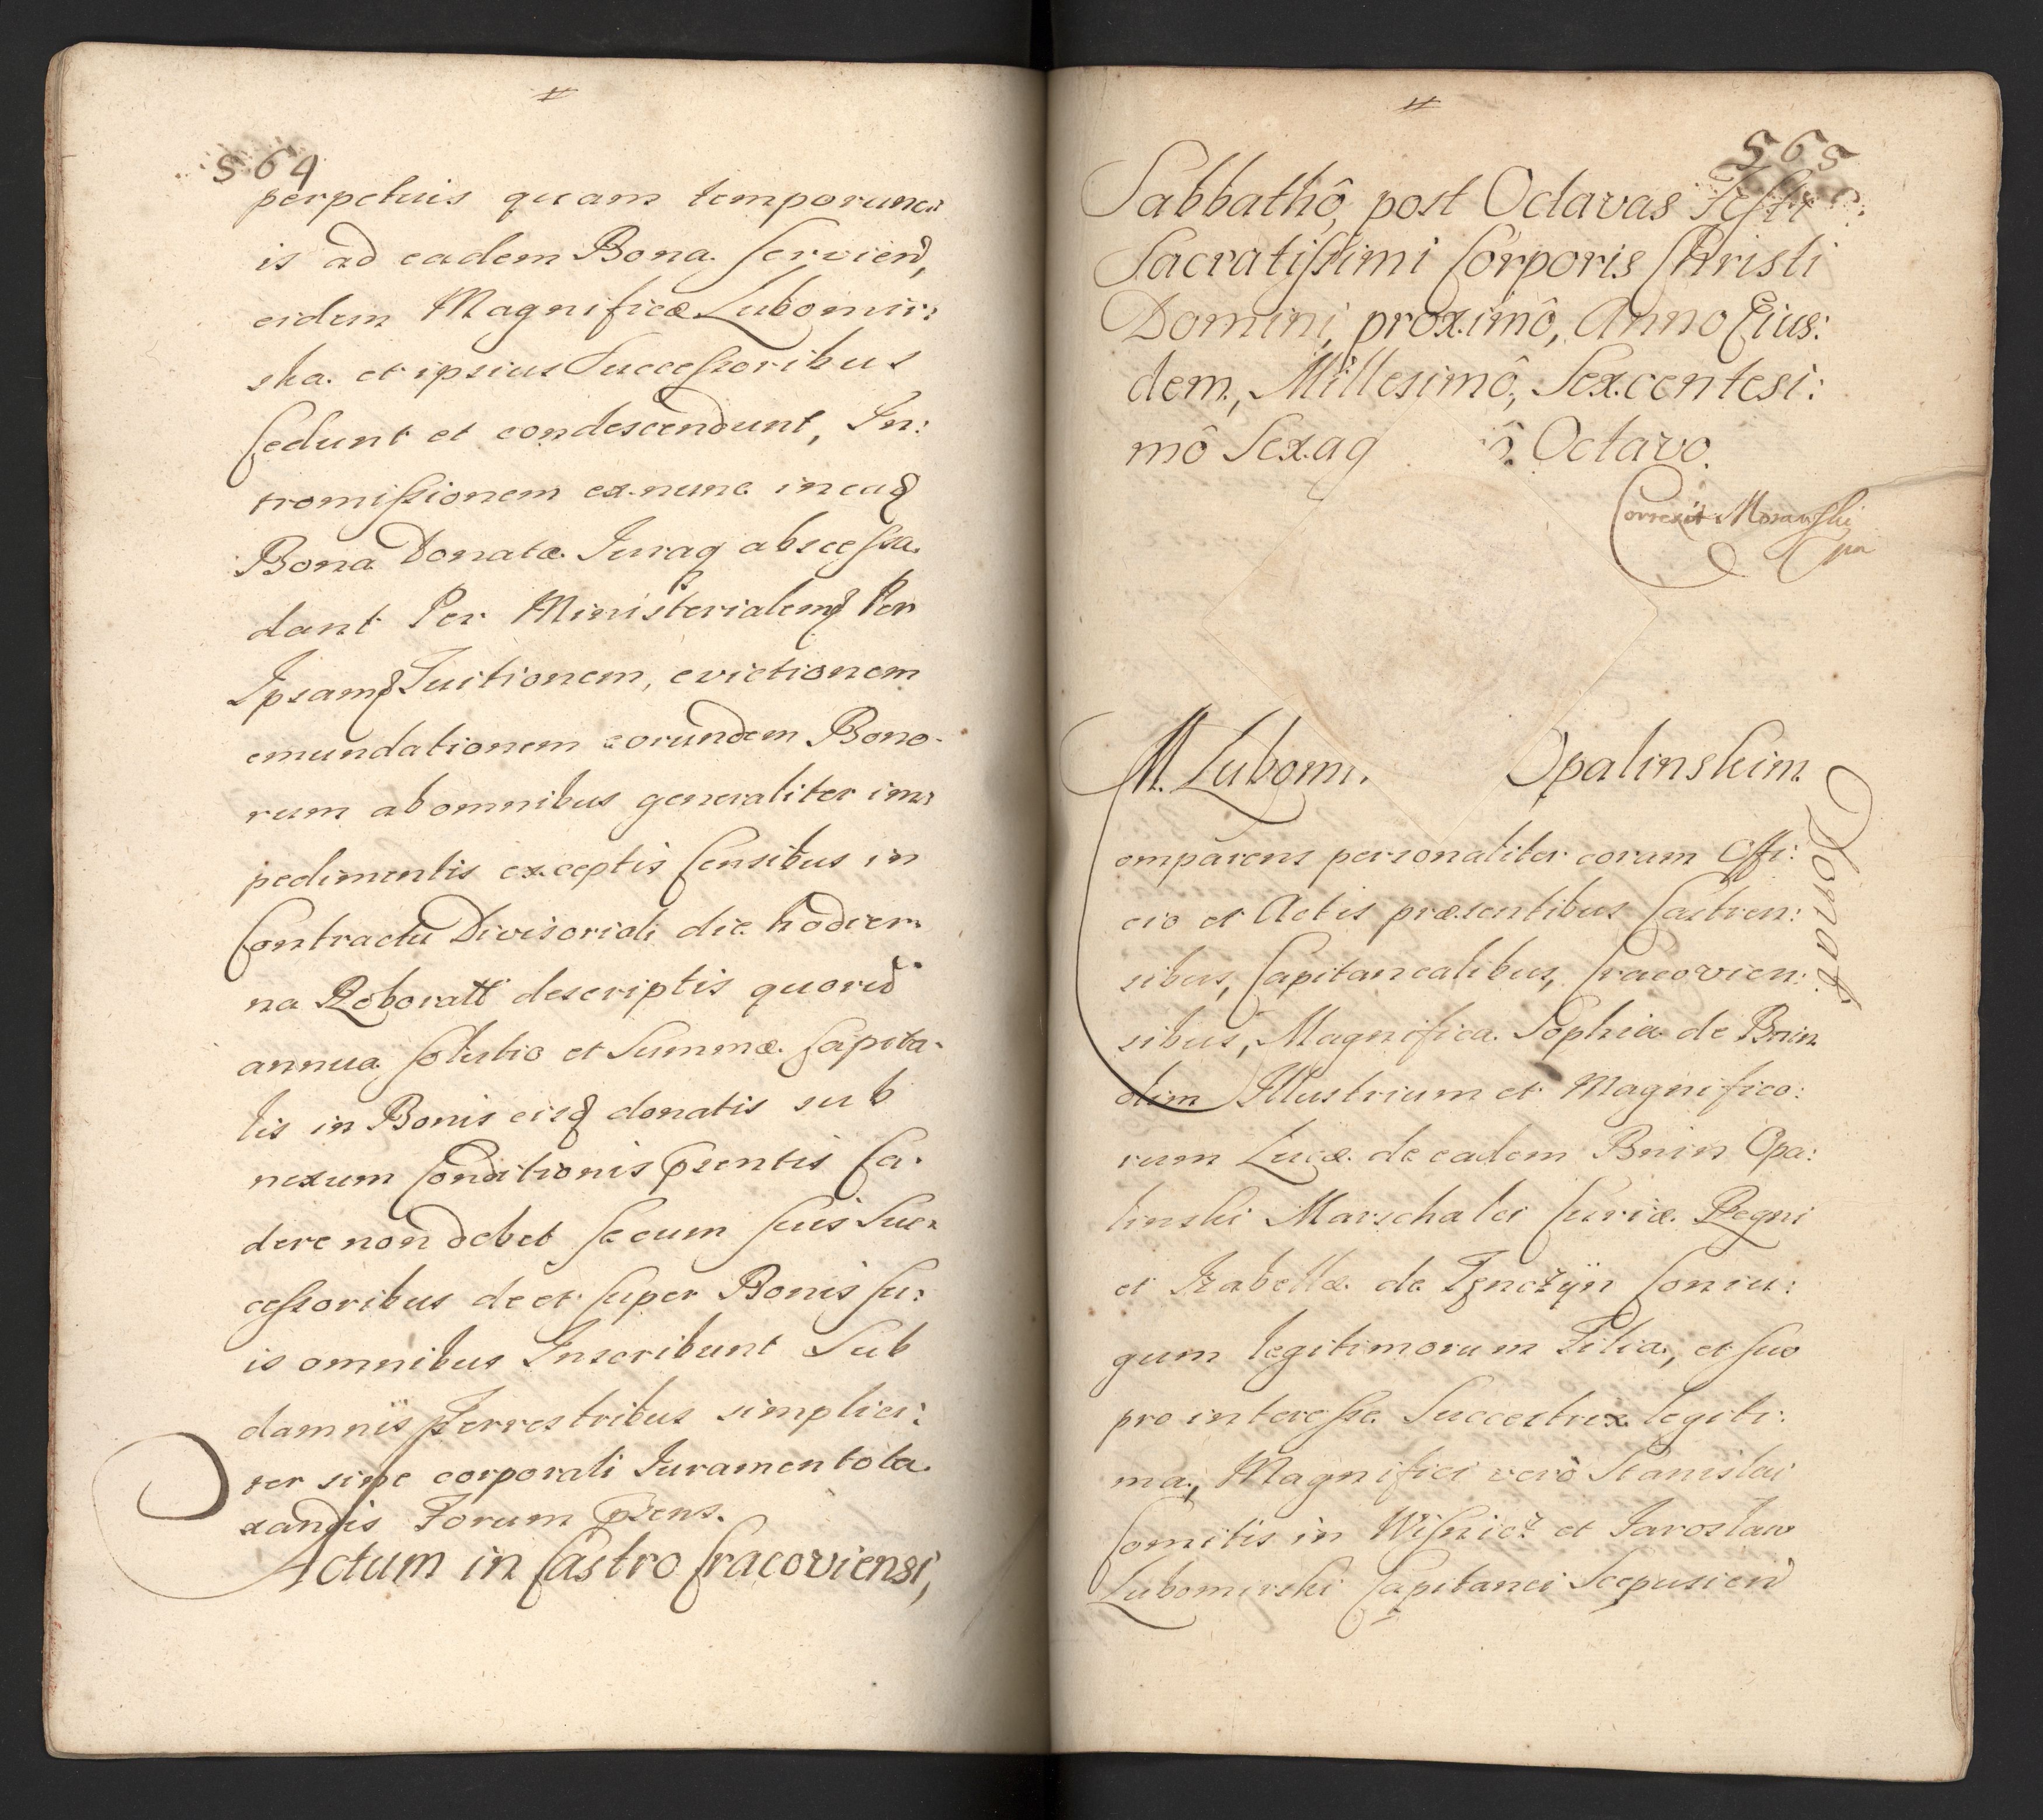 564
perpetuis quam temporune:
is ad eadem Bona servien̄,
eidem Magnificæ Lubomir:
ska et ipsius Successoribus
Cedunt et condescendunt, In:
tromissionem ex nunc in eaq̄
Bona Donata Juraq abscessa
dant Per Ministerialemq̄ Per
Ipsamq̄ Tuitionem, evictionem
emundationem eorundem Bono-
rum ab omnibus generaliter im:
pedimentis exceptis Censibus in
Contractu Divisoriali die hodier-
na Roboratt descriptis quorū
annua solutio et Summæ Capita-
lis in Bonis eisq̄ donatis sub
nexum Conditionis pr̄sentis Ca-
dere non debet se cum suis Suc-
cessoribus de et super Bonis su:
is omnibus Inscribunt Sub
damnis Terrestribus simplici:
ter sine corporali Juramento ta-
xandis Forum pr̄sens.
Actum in Castro Cracoviensi,
565
Sabbathô, post Octavas Festi
Sacratissimi Corporis Christi
Domini, proximô, Anno Eius:
dem, Millesimô, Sexcentesi:
mô Sexag ô. Octavo.
Correxit Morawski
mp
M. Lubomi. Opalinskim
Donat:
Comparens personaliter coram Offi:
cio et Actis præsentibus Castren:
sibus, Capitanealibus, Cracovien:
sibus, Magnifica Sophia de Bnin
olim Illustrium et Magnifico:
rum Lucæ de eadem Bnin Opa:
linski Marschalci Curiæ Regni
et Izabellæ de Tęnczÿn Coniu:
gum legitimorum Filia, et suo
pro interesse Successtrix legiti:
ma, Magnifici verò Stanislai
Comitis in Wisnicz et Jaroslaw
Lubomirski Capitanei Scepusien̄